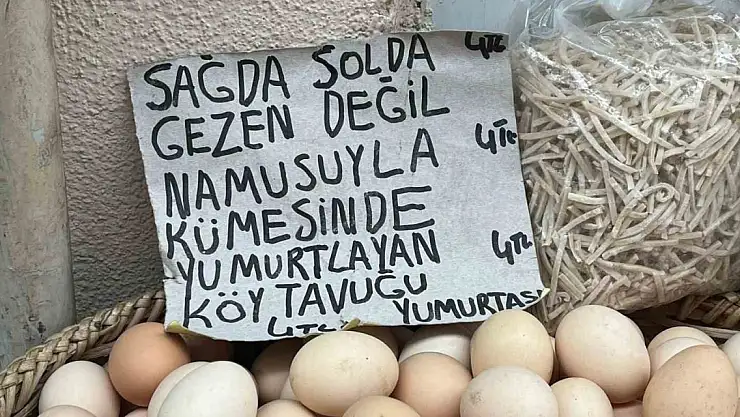 SAĞDA SOLDA 4TL
GEZEN DEĞİL
NAMUSUYLA 4TL
KÜMESİNDE
YUMURTLAYAN 4TL
KÖY TAVUĞU
4TL YUMURTASI